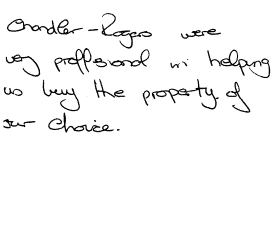 Chandler-Rogers were
very proffesional in helping
us buy the property of
our choice.